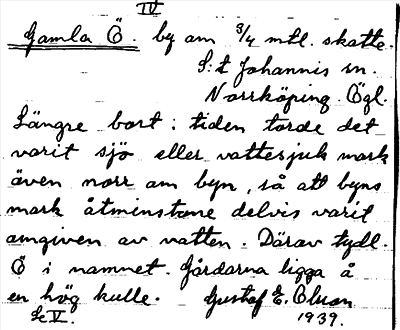 IV
Gamla Ö. by om 3/4 mtl. skatte.
S:t Johannis sn.
Norrköping Ögl.
Längre bort i tiden torde det
varit sjö eller vattesjuk mark
även norr om byn, så att byns
mark åtminstone delvis varit
omgiven av vatten. Därav tydl.
Ö i namnet. Gårdarna ligga å
en hög kulle. Gustaf E. Olson
1939.